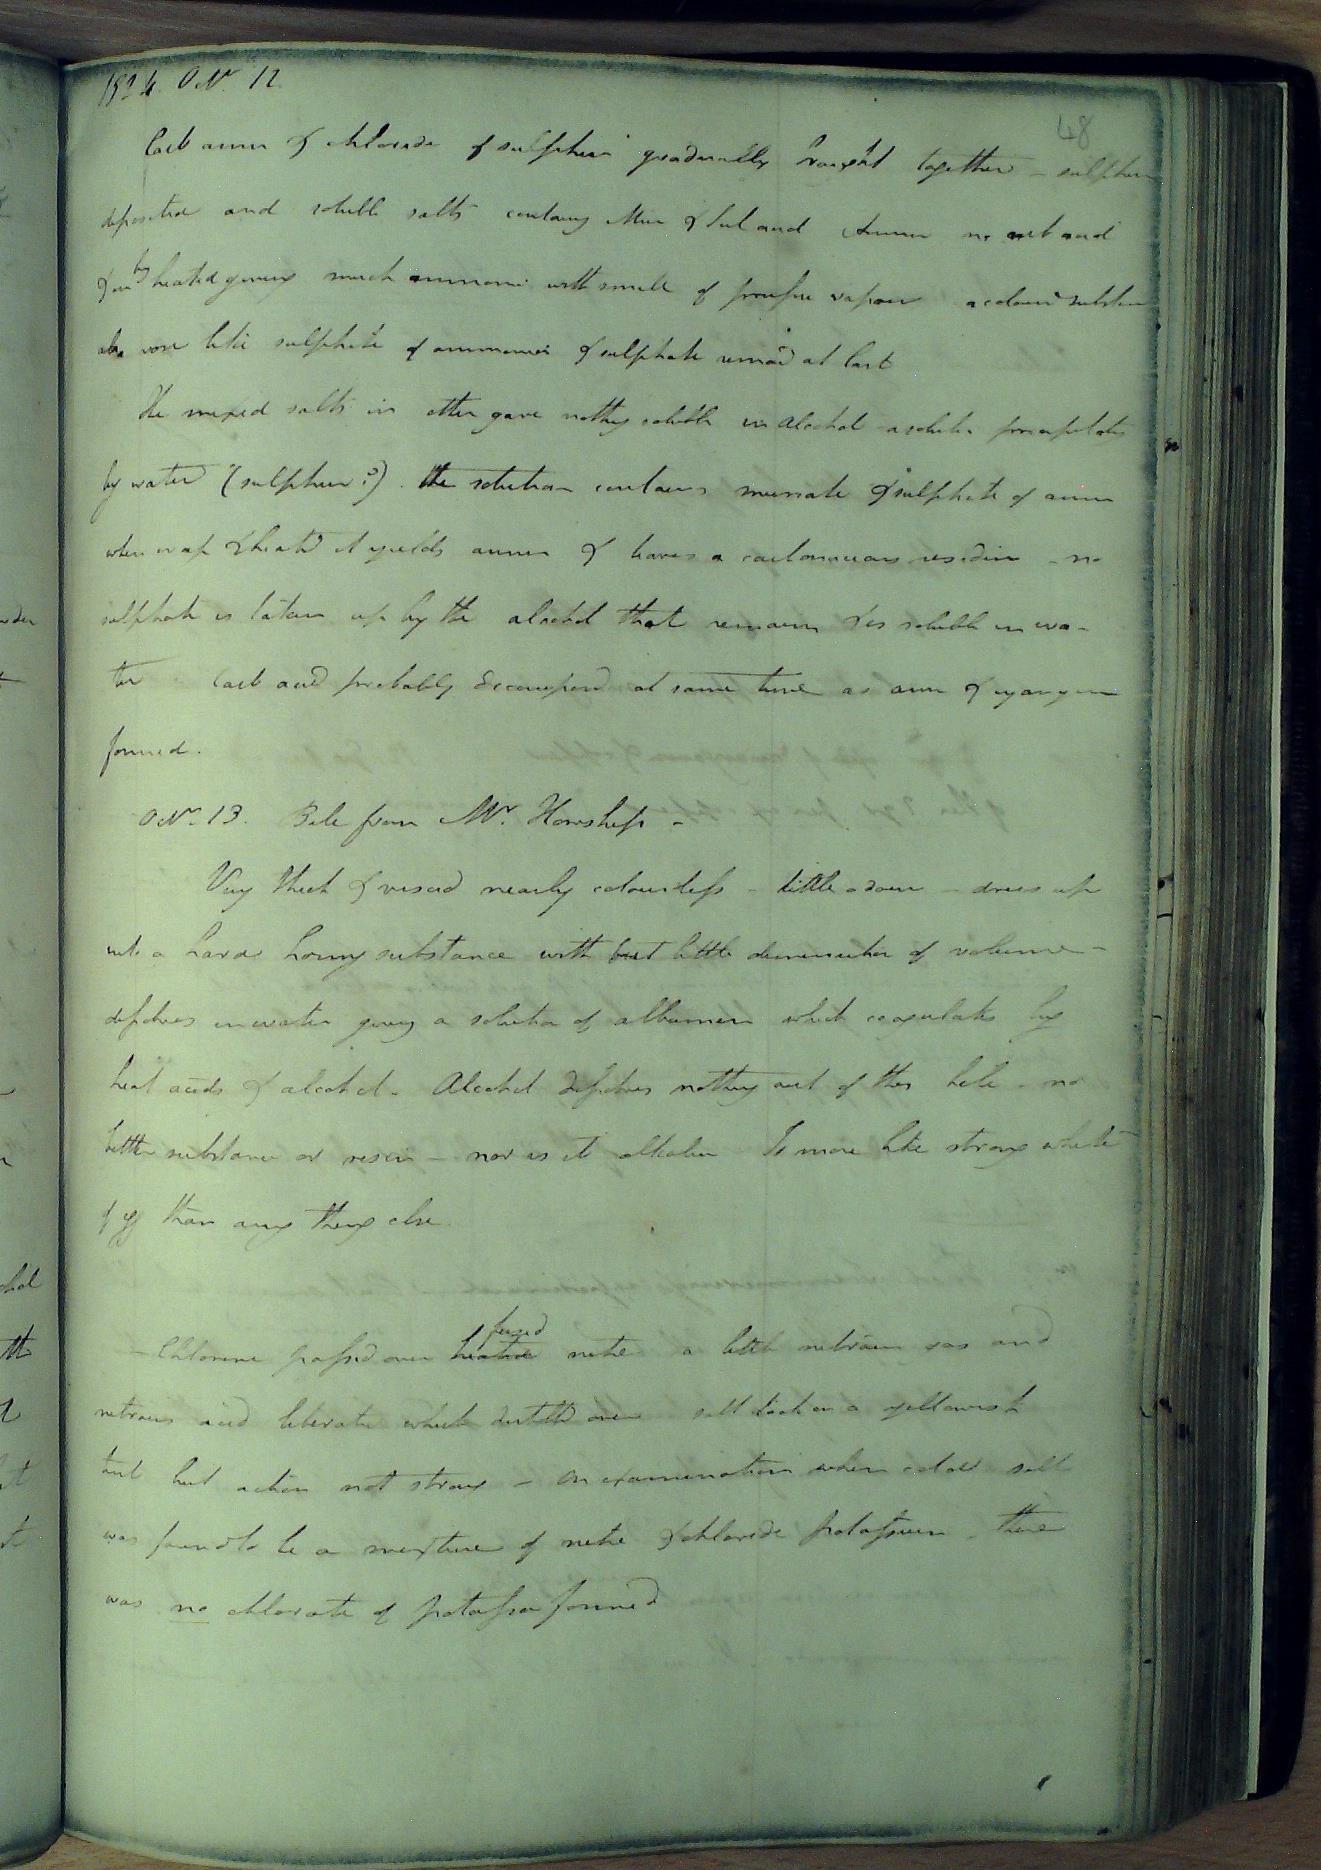 1824 Oct. 12.
48
Carb amm & chloride of sulphur gradually brought together - sulphur
deposited and soluble salts containg Mur & Sul acid Amm no carb acid
& on being heated giving much ammonia with smell of vapour
also rose like sulphate of ammonia & sulphate remd at last
The mixed salts in gave nothing soluble in alcohol precipitates
by water (sulphur?). The solution contains muriate & sulphate of amm
when evap & heated it yields amm & leaves a carbonaceous residue - no
sulphate is taken up by the alcohol that remains & is soluble in wa-
ter - Carb acid probably decomposed at same time as amm & cyanogen
formed.
Oct. 13. Bile from Mr. Howship -
Very thick & viscid nearly colourless - little odour - dries up
into a hard horny substance with but little diminution of volume -
dissolves in water giving a solution of albumen which coagulates by
heat acids & alcohol. Alcohol dissolves nothing out of this bile - no
bitter substance or resin - nor is it alkaline Is more like strong white
of egg than any thing else.
- Chlorine passed over heated fused nitre a little nitrous gas and
nitrous acid liberated which distilld over salt took on a yellowish
tint but action not strong - on examination when cold salt
was found to be a mixture of nitre & chloride potassium - there
was no chlorate of potassa formed